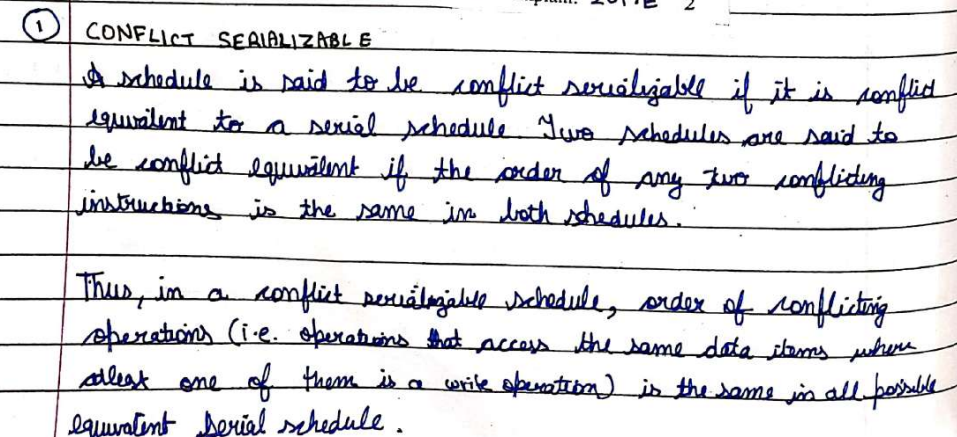 1 CONFLICT SERIALIZABLE
A schedule is said to be conflict serializable if it is conflict
equivalent to a serial schedule. Two schedules are said to
be conflict equivalent if the order of any two conflicting
instructions is the same in both schedules.
Thus, in a conflict serializable schedule, order of conflicting
operations (i.e. operations that access the same data items where
atleast one of them is a write operation) is the same in all possible
equivalent serial schedule.